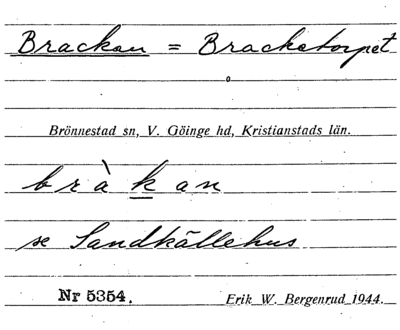 Brackan = Bracketorpet
Brönnestad sn, V. Göinge hd, Kristianstads län.
bràkan
se Sandkällehus
Nr 5354.
Erik W. Bergenrud 1944.